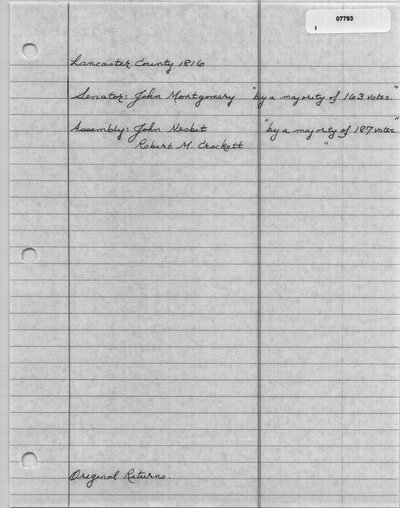 07793
Lancaster County 1816
Senator: John Montgomery "by a majority of 163 votes."
Assembly: John Nesbit "by a majority of 187 votes."
Robert M. Crockett "
Original Returns.